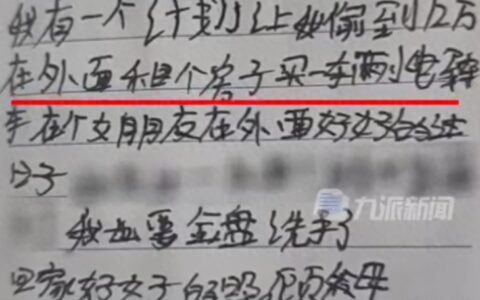 我有一个计划让我偷到12万
在外面租个房子买一车两小电
在个女朋友在外面好好过
日子
九派新闻
我也要金盘洗手了
回家好好父母